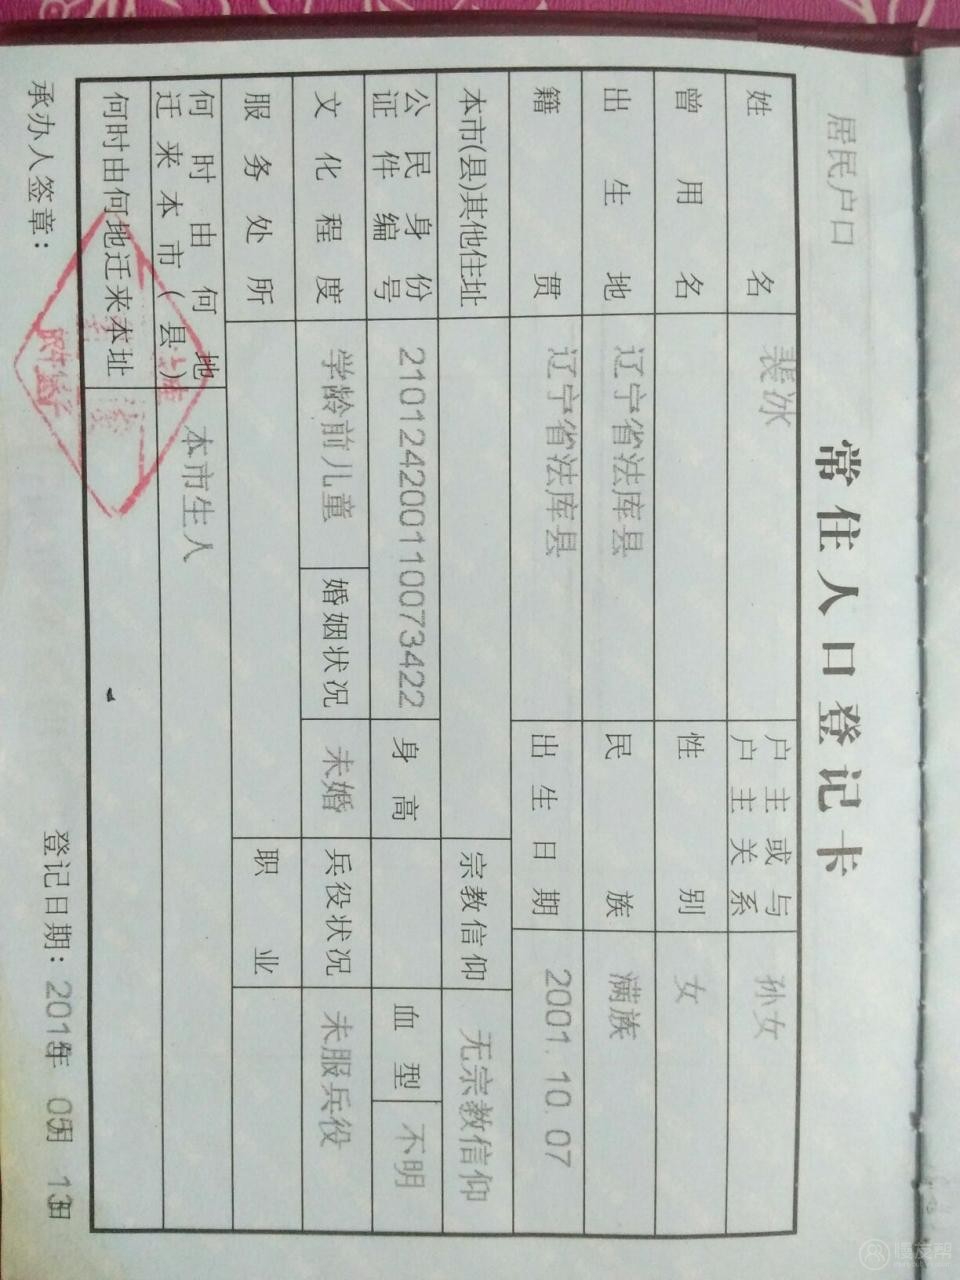 居民户口
常住人口登记卡
姓名 裴冰 户主或与户主关系 孙女
曾用名 性别 女
出生地 辽宁省法库县 民族 满族
籍贯 辽宁省法库县 出生日期 2001.10.07
本市(县)其他住址 宗教信仰 无宗教信仰
公民身份证件编号 210124200110073422 身高 血型 不明
文化程度 学龄前儿童 婚姻状况 未婚 兵役状况 未服兵役
服务处所 职业
何时由何地迁来本市(县) 本市生人
何时由何地迁来本址
承办人签章: 登记日期: 年 05月 13日